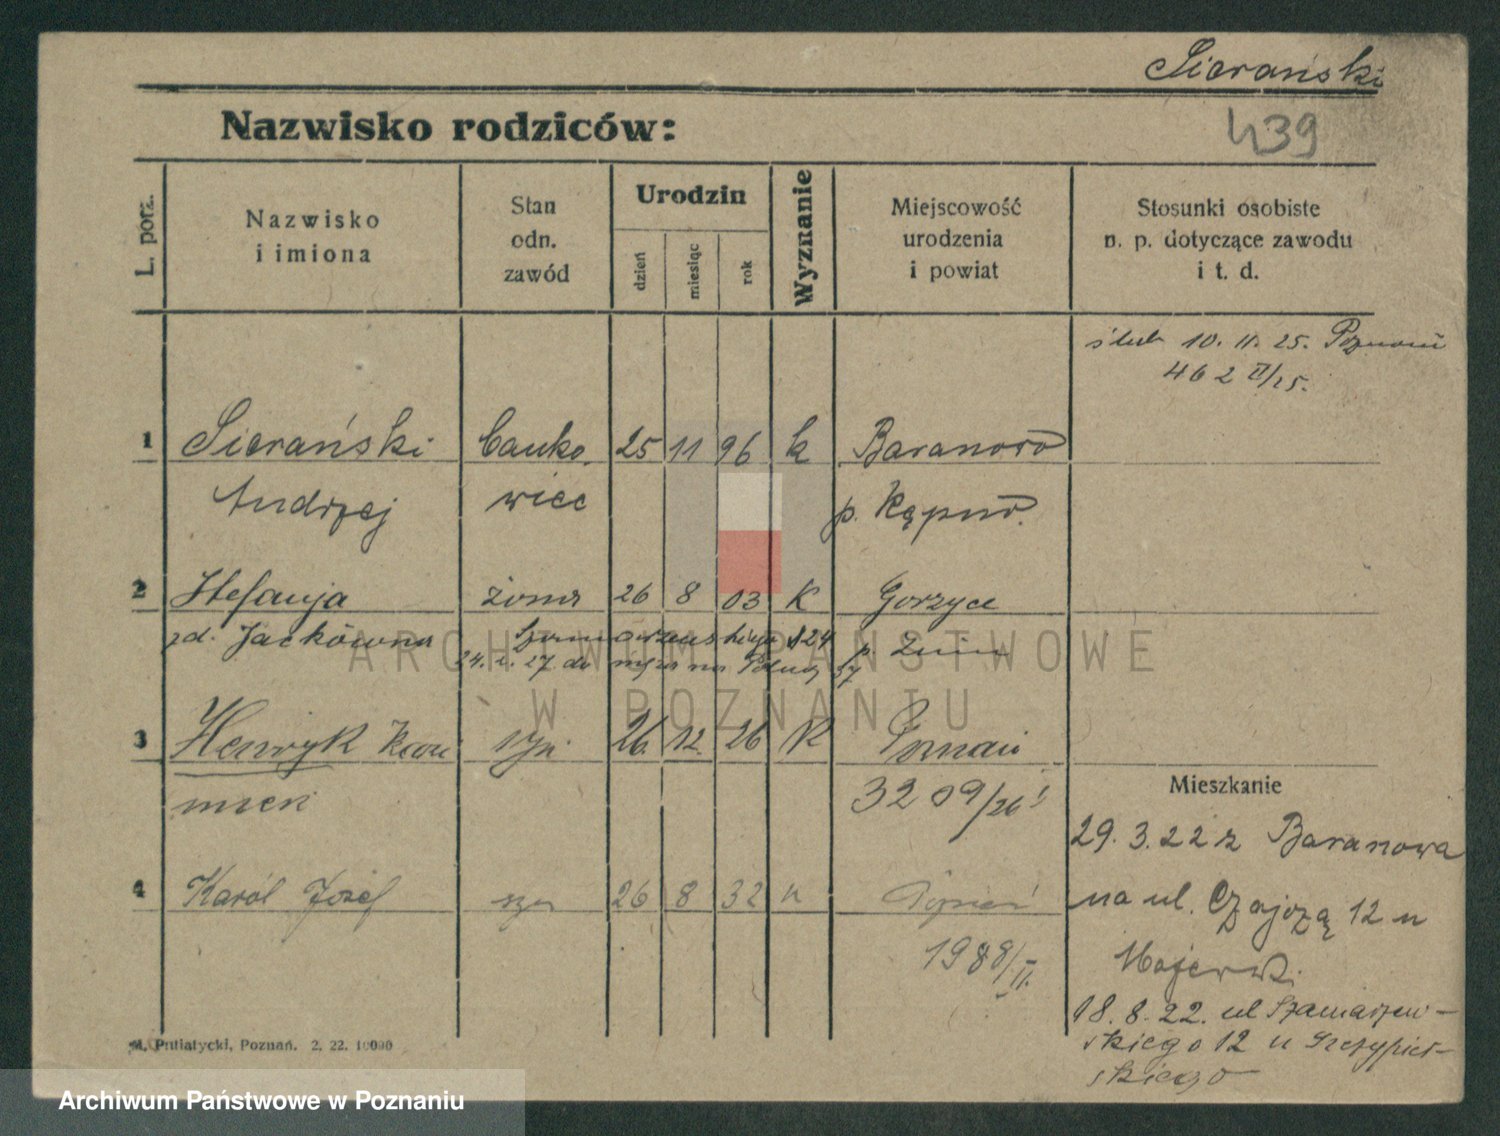 Sierański
439
Nazwisko rodziców:
L. porz.
Nazwisko
i imiona
Stan
odn.
zawód
Urodzin
dzień
miesiąc
rok
Wyznanie
Miejscowość
urodzenia
i powiat
Stosunki osobiste
n. p. dotyczące zawodu
i t. d.
ślub 10. 11. 25. Poznań
462 II/25.
1 Sierański banko. 25 11 96 k Baranow
Andrzej wiec p. Kępno.
2 Stefanja żona 26 8 03 K Gorzyce
zd. Jackówna Szamarzewskiego 124 p. Żnin
24. 2. 27 do męża na Półwiej 37
3 Henryk Kazi syn 26. 12. 26 K Poznań
mierz 3209/26
4 Karól Józef syn 26 8 32 k Poznań
1988/II.
Mieszkanie
29. 3. 22 z Baranowa
na ul. Czajczą 12 u
18. 8. 22. ul Szamarzew-
skiego 12 u
skiego
M. Putiatycki, Poznań. 2. 22. 10000
ARCHIWUM PAŃSTWOWE
W POZNANIU
Archiwum Państwowe w Poznaniu